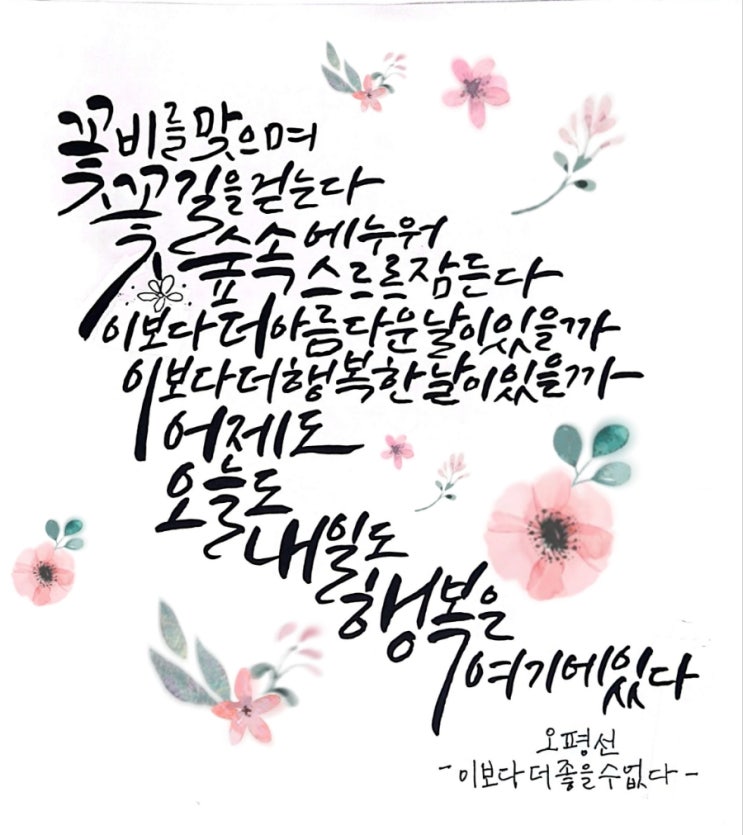 꽃비를 맞으며
꽃길을 걷는다
숲속에 누워
스르르 잠든다
이보다 더 아름다운 날이 있을까
이보다 더 행복한 날이 있을까
어제도
오늘도
내일도
행복은
여기에 있다
오평선
- 이보다 더 좋을 수 없다 -